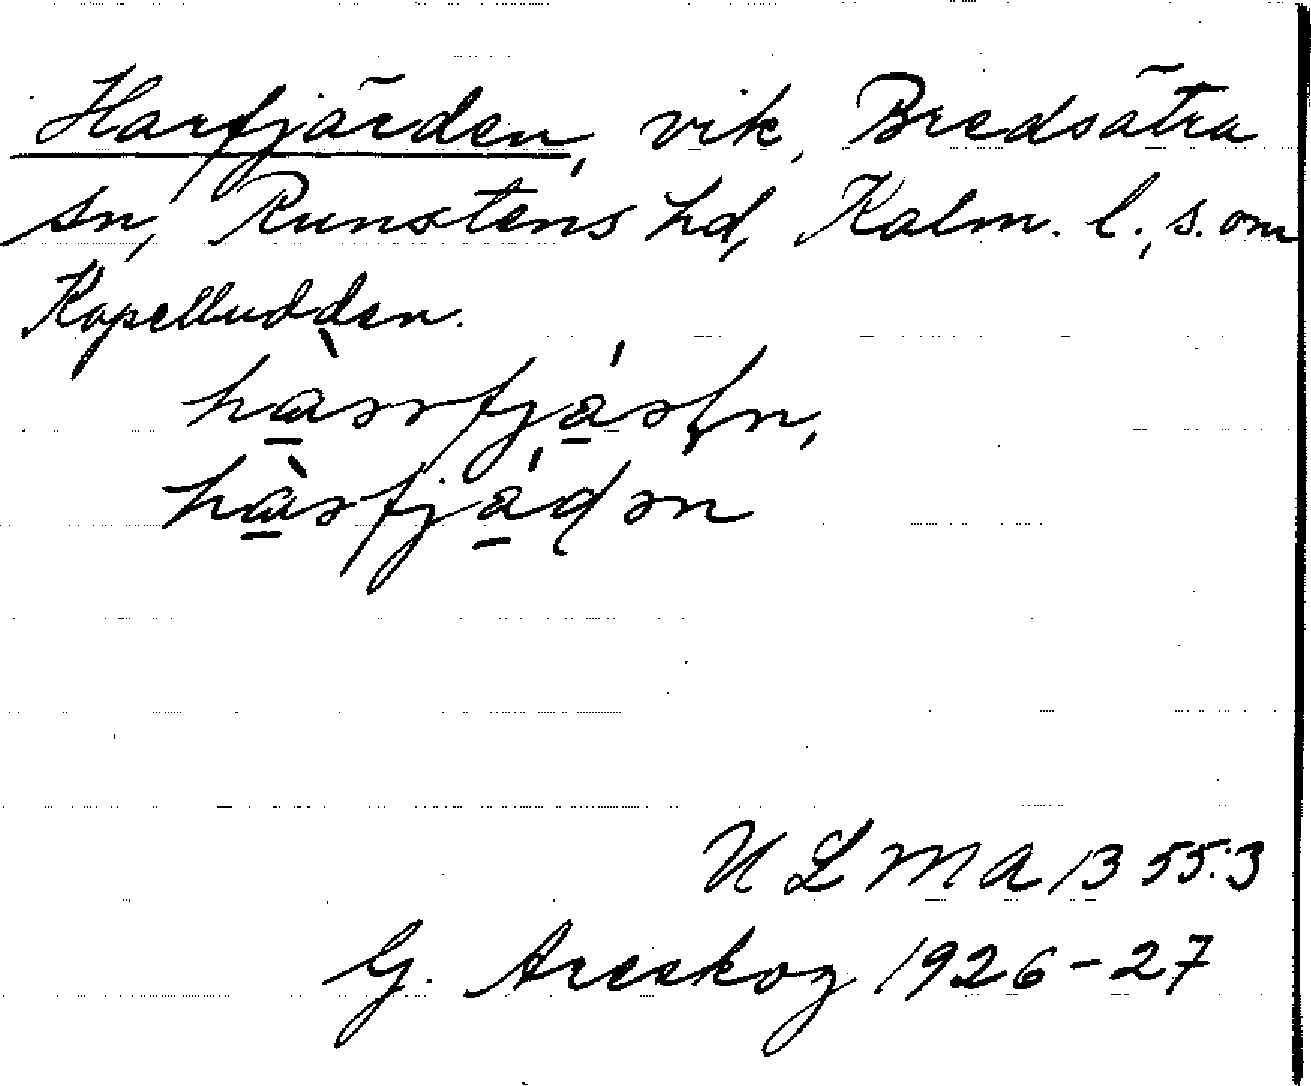 Harfjärden, vik, Bredsätra
sn, Runstens hd, Kalm. l., s. om
Kapelludden.
U L M A 1355:3
G. Areskog 1926-27